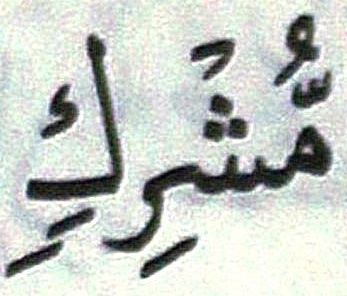 مُّشْرِكٍ